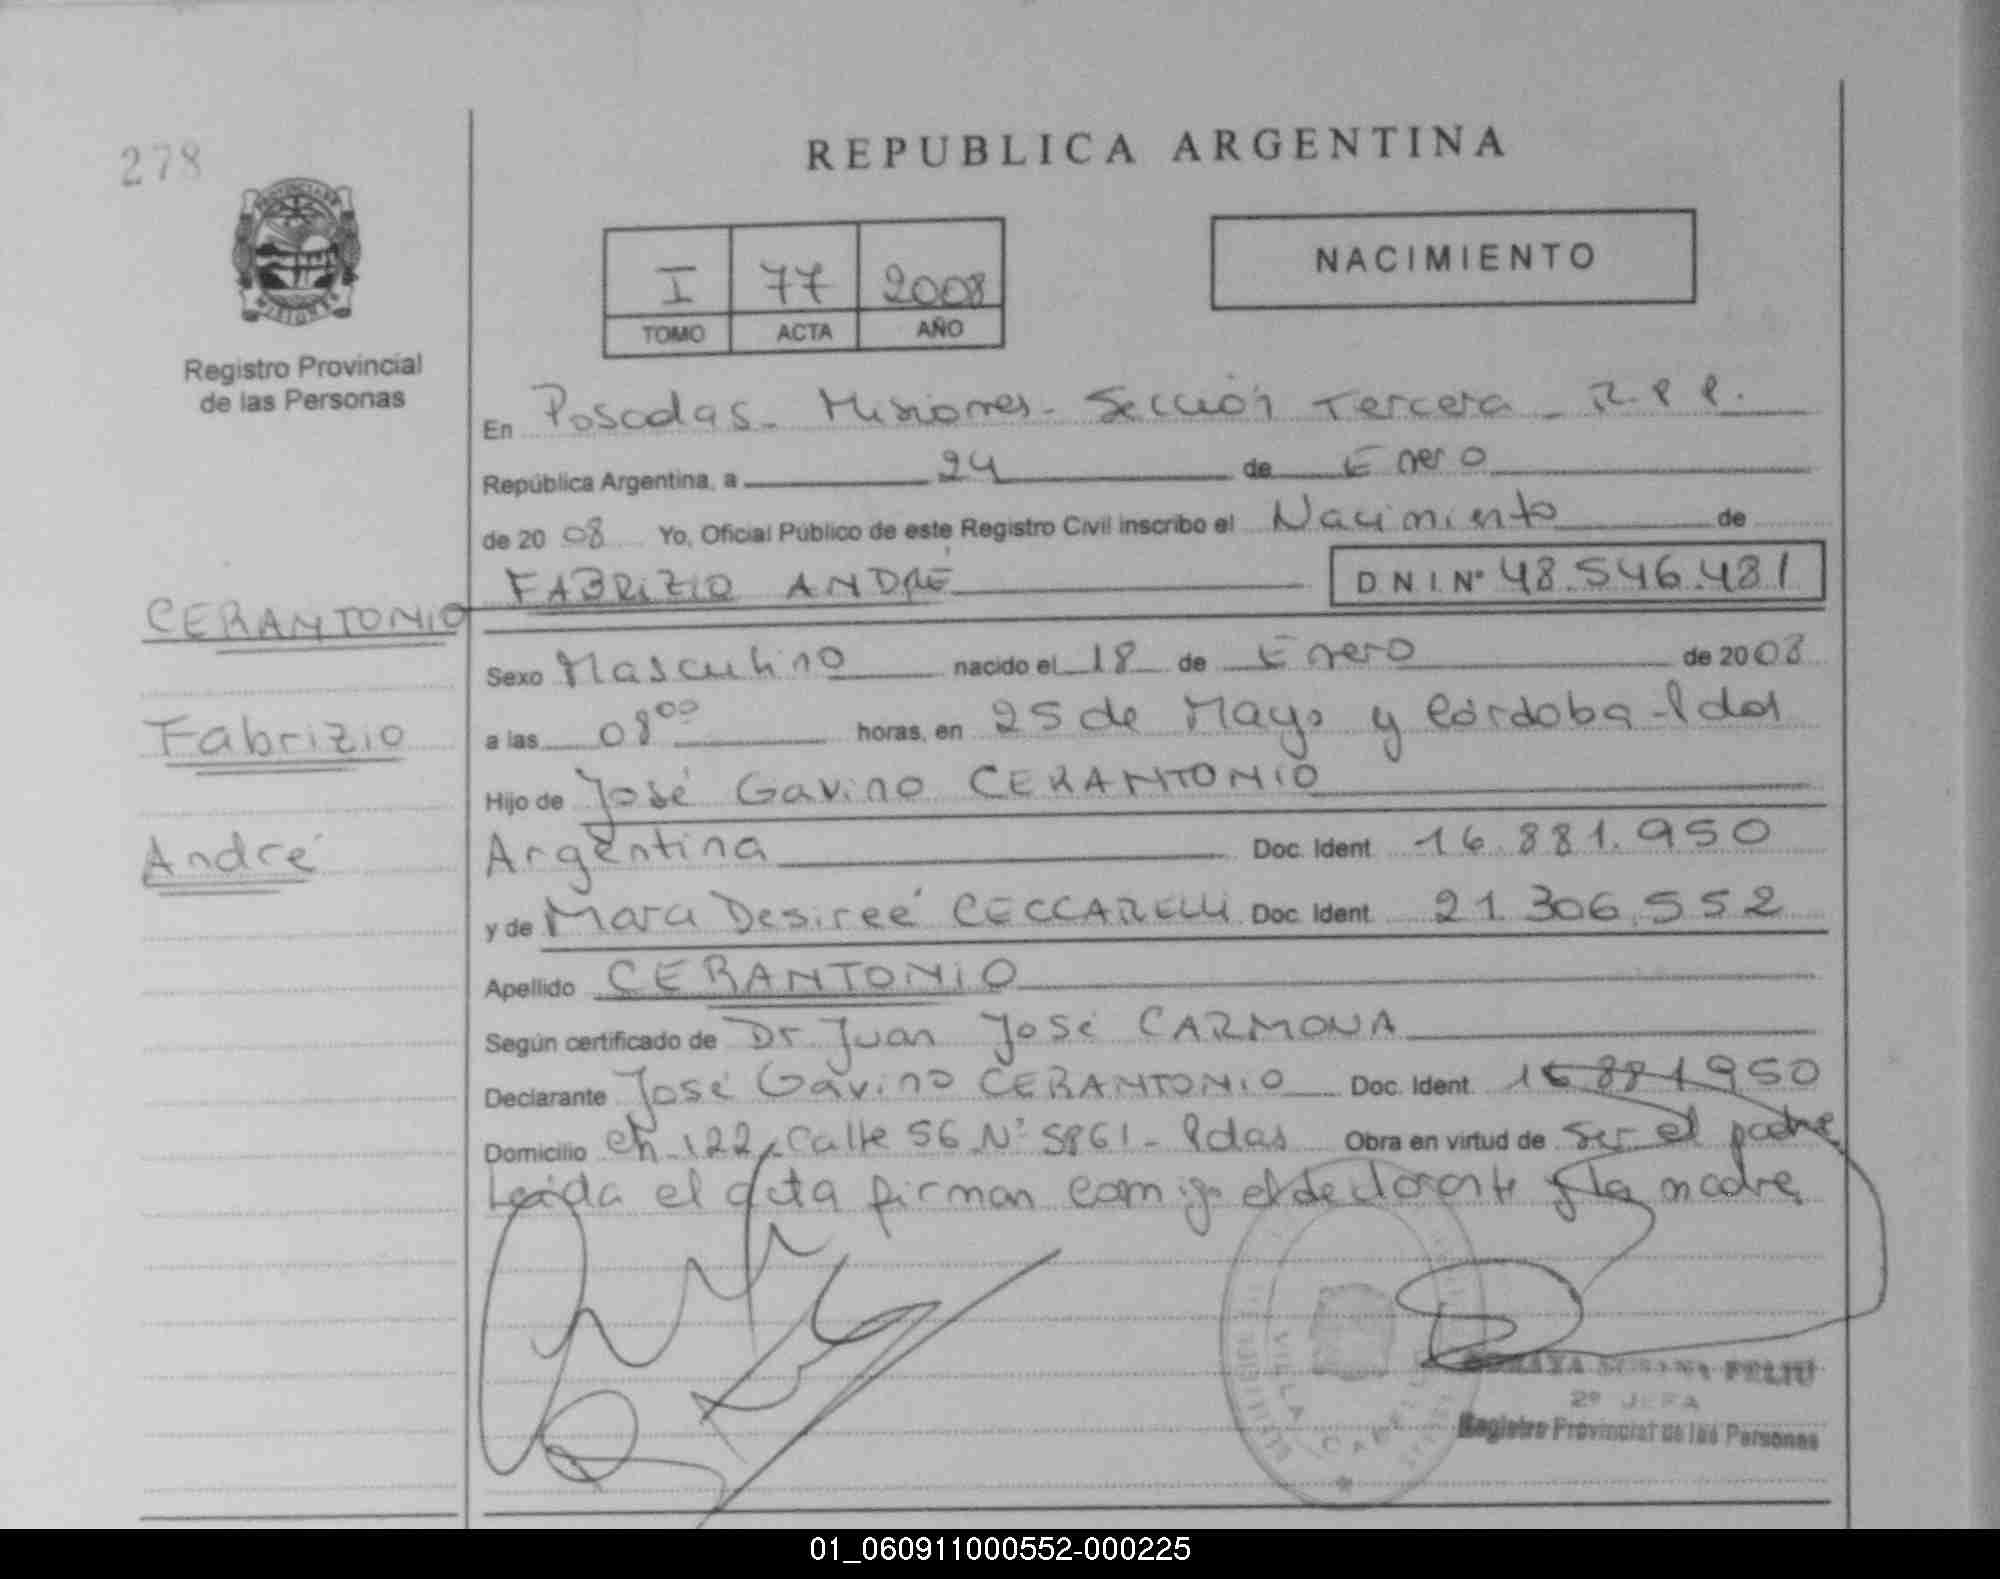 278
REPUBLICA ARGENTINA
NACIMIENTO
I 77 2008
TOMO ACTA AÑO
Registro Provincial
de las Personas
En Posadas - Misiones - Sección Tercera - R.P.P.
República Argentina, a 24 de Enero
de 2008 Yo, Oficial Público de este Registro Civil inscribo el Nacimiento de
FABRIZIO ANDRÉ D N I. N° 48.546.481
CERANTONIO
Fabrizio
André
Sexo Masculino nacido el 18 de Enero de 2008
a las 08 00 horas, en 25 de Mayo y Córdoba - Pdas
Hijo de José Gavino CERANTONIO
Argentina Doc. Ident. 16.881.950
y de Mara Desireé CECCARELLI Doc. Ident. 21.306.552
Apellido CERANTONIO
Según certificado de Dr Juan José CARMONA
Declarante José Gavino CERANTONIO Doc. Ident. 16881950
Domicilio Ch. 122, Calle 56 N° 5861 - Pdas Obra en virtud de ser el padre
Leída el acta firman conmigo el declarante y la madre
VILLA CABELLO
FELIU
2° JEFA
Registro Provincial de las Personas
01_060911000552-000225